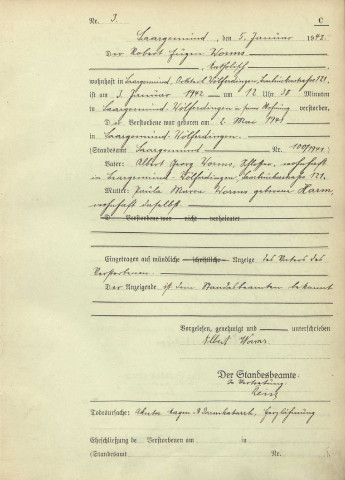 Nr. 3. C
Saargemünd, den 5. Januar 1942.
Der Robert Eugen Worms,
katholisch,
wohnhaft in Saargemünd, Ortsteil Wölferdingen, Saarbrückerstraße 121,
ist am 3. Januar 1942 um 12 Uhr 30 Minuten
in Saargemünd-Wölferdingen in seiner Wohnung verstorben.
Der Verstorbene war geboren am 2. Mai 1941
in Saargemünd-Wölferdingen.
(Standesamt Saargemünd Nr. 100/1941)
Vater: Albert Georg Worms, Schlosser, wohnhaft
in Saargemünd-Wölferdingen, Saarbrückerstraße 121.
Mutter: Paula Marie Worms geborene Harm,
wohnhaft daselbst.
D Verstorbene war nicht verheiratet
Eingetragen auf mündliche schriftliche Anzeige des Vaters des
Verstorbenen.
Der Anzeigende ist dem Standesbeamten bekannt
Vorgelesen, genehmigt und unterschrieben
Albert Worms
Der Standesbeamte
In Vertretung
Todesursache: Akuter Magen- &amp; Darmkatarrh, Herzlähmung
Eheschließung de Verstorbenen am in
(Standesamt Nr.